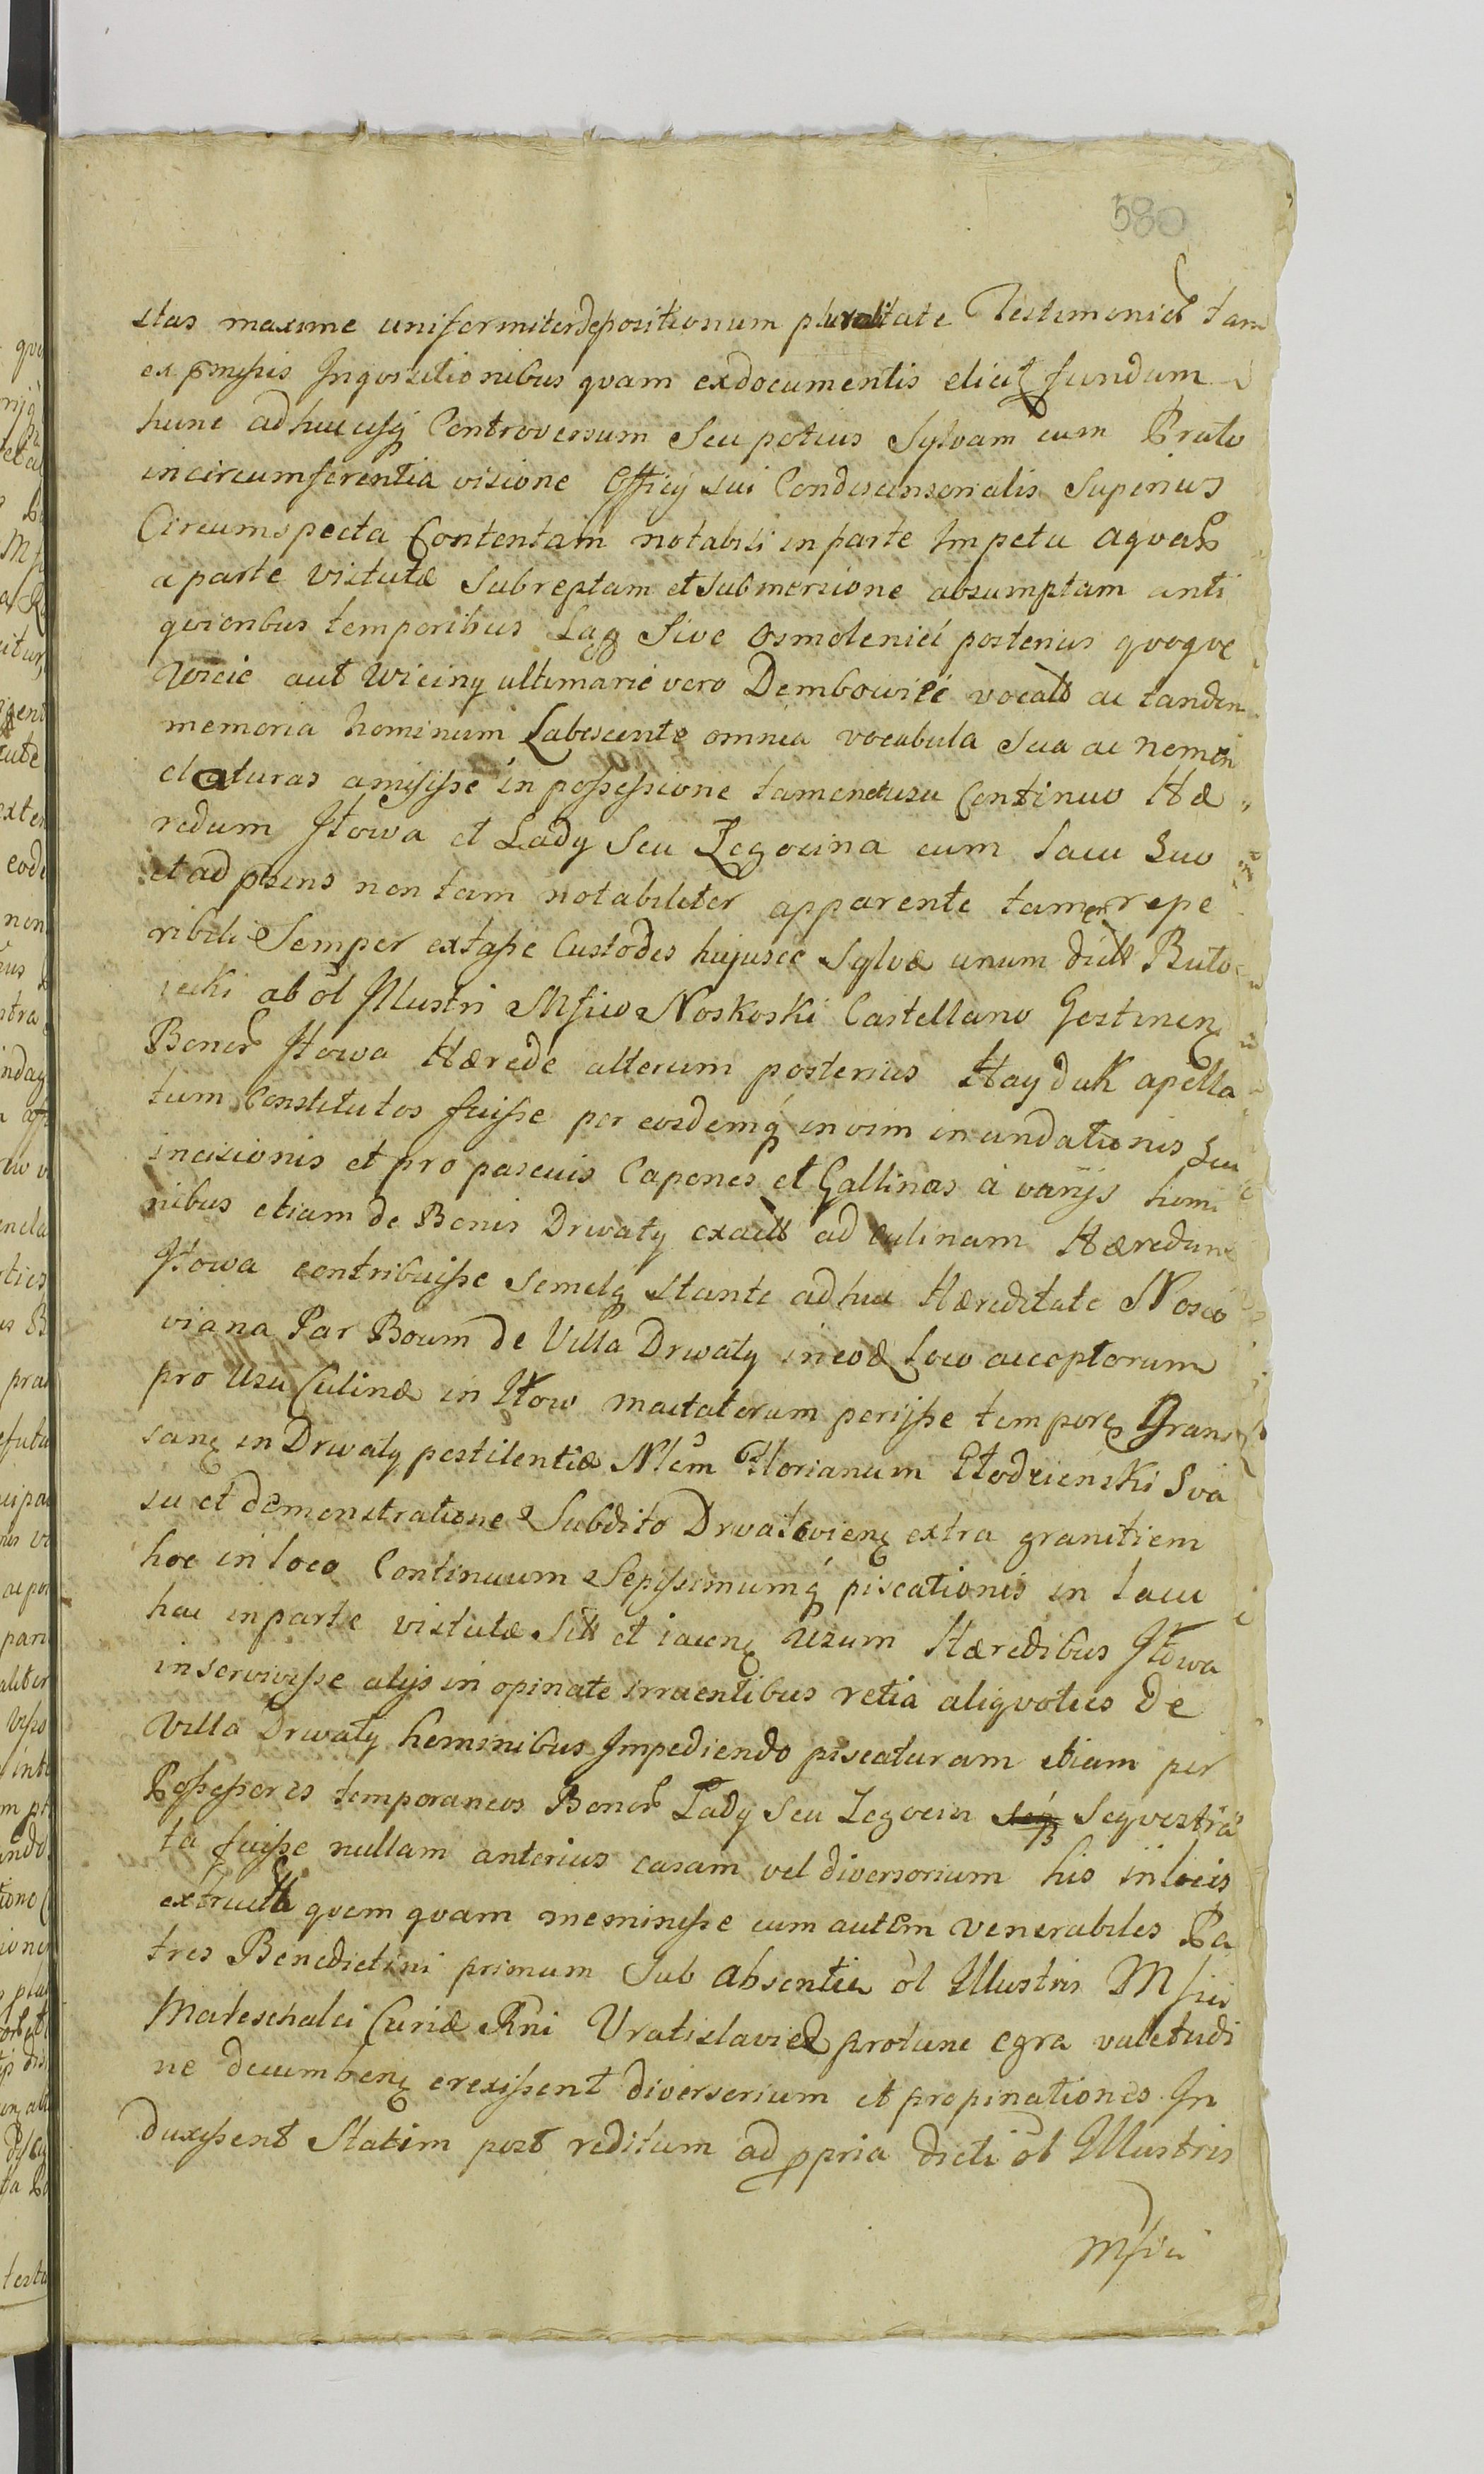 580
stas maxime uniformiter depositionum pluralitate Testimonior tam
ex pmissis Inqvisitionibus qvam ex documentis elicit fundum
hunc adhucusq Controversum Seu potius Sylvam cum Prato
in circumferentia visione Officij sui Condescensorialis Superius
Circumspecta Contentam notabili in parte Impetu aqvar
a parte Vistulæ Subreptam et Submersione absumptam anti
qvioribus temporibus Lag Sive Osmolenici posterius qvoqve
Wicie aut Wiciny ultimarie vero Dembowiec vocat ac tandem
memoria hominum Labescente omnia vocabula Sua ac nomen
claturas amisisse in possessione tamen et usu Continuo Hæ
redum Iłowa et Lady Seu Zegocina cum lacu Suo
et ad pñens non tam notabiliter apparente tamen repe
ribili Semper extasse Custodes hujusce Sylvæ unum dict Ruto
recki ab ol Illustri Msico Noskoski Castellano Gostinen
Bonor Iłowa Hærede alterum posterius Hayduk apella
tum Constitutos fuisse per eosdemq in vim inundationis Seu
incisionis et pro pascuis Capones et Gallinas à varijs homi
nibus etiam de Bonis Drwały exact ad Culinam Hæredum
Iłowa contribuisse Semelq stante adhuc Hæreditate Nosco
viana Par Boum de Villa Drwały in eod Loco acceptorum
pro Usu Culinæ in Iłow mactatorum perijsse tempore Gras
san in Drwały pestilentiæ Nlem Florianum Słodzienski Sva
su et demonstratione Subdito Drwałovien extra granitiem
hoc in loco Continuum Sepissimumq piscationis in lacu
hac in parte vistulæ Sit et iacen Usum Hæredibus Iłowa
inservivisse alijs in opinate irruentibus retia aliqvoties de
Villa Drwały hominibus Impediendo piscaturam etiam per
Possessores temporaneos Bonor Lady Seu Zegocin seq Seqvestra
ta fuisse nullam anterius casam vel diversorium his in locis
extruct qvem qvam meminisse cum autem Venerabiles Pa
tres Benedictini primum Sub absentia ol Illustris Msici
Mareschalci Curiæ Rni Vratislaviæ protunc egra valetudi
ne decumben erexissent diversorium et propinationes In
duxissent Statim post reditum ad ppria dicti ol Illustris
Msici